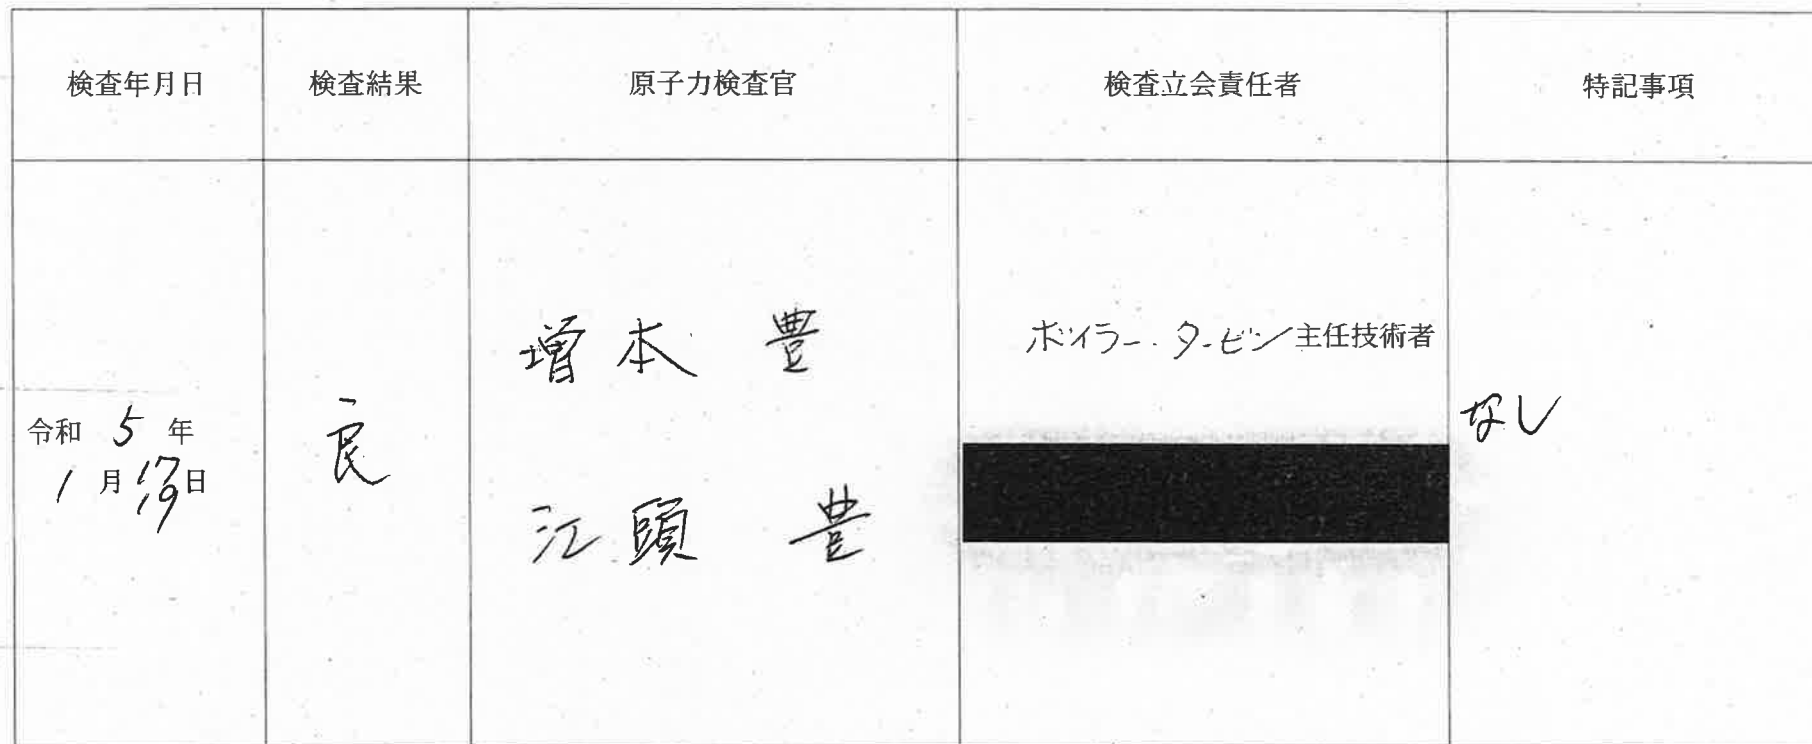 検査年月日
検査結果
原子力検査官
検査立会責任者
特記事項
令和 5 年
1 月 17 19 日
良
増本 豊
江頭 豊
ボイラー・タービン主任技術者
なし